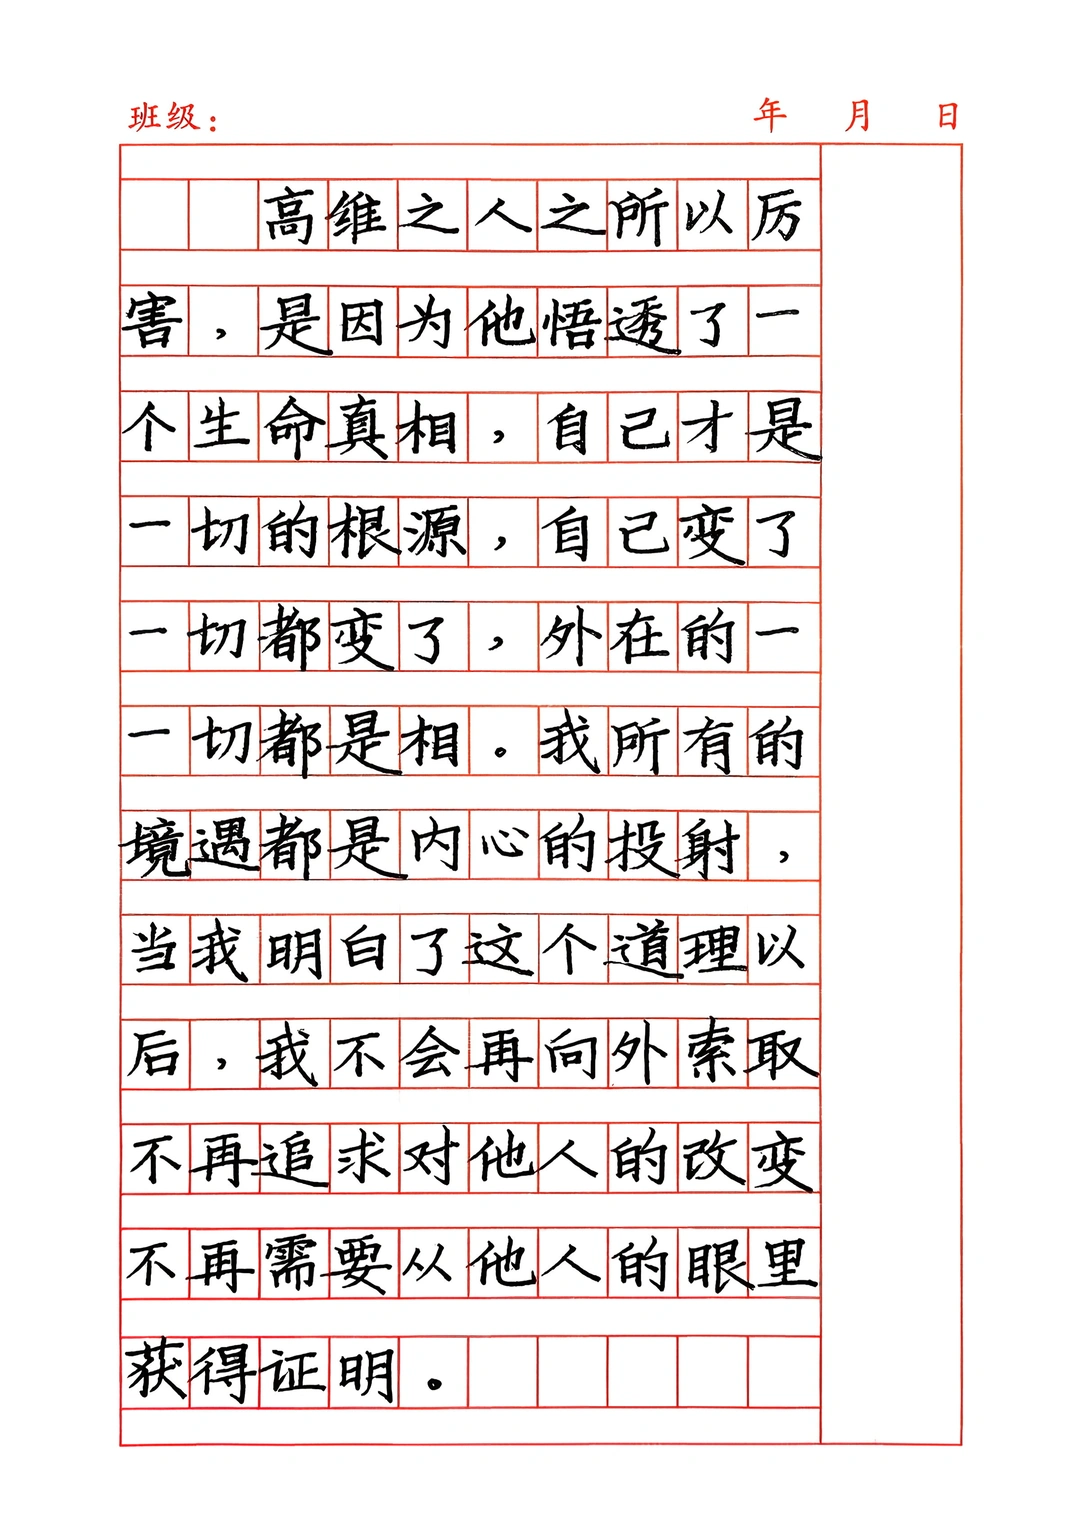 班级： 年 月 日
高维之人之所以厉
害，是因为他悟透了一
个生命真相，自己才是
一切的根源，自己变了
一切都变了，外在的一
一切都是相。我所有的
境遇都是内心的投射，
当我明白了这个道理以
后，我不会再向外索取
不再追求对他人的改变
不再需要从他人的眼里
获得证明。